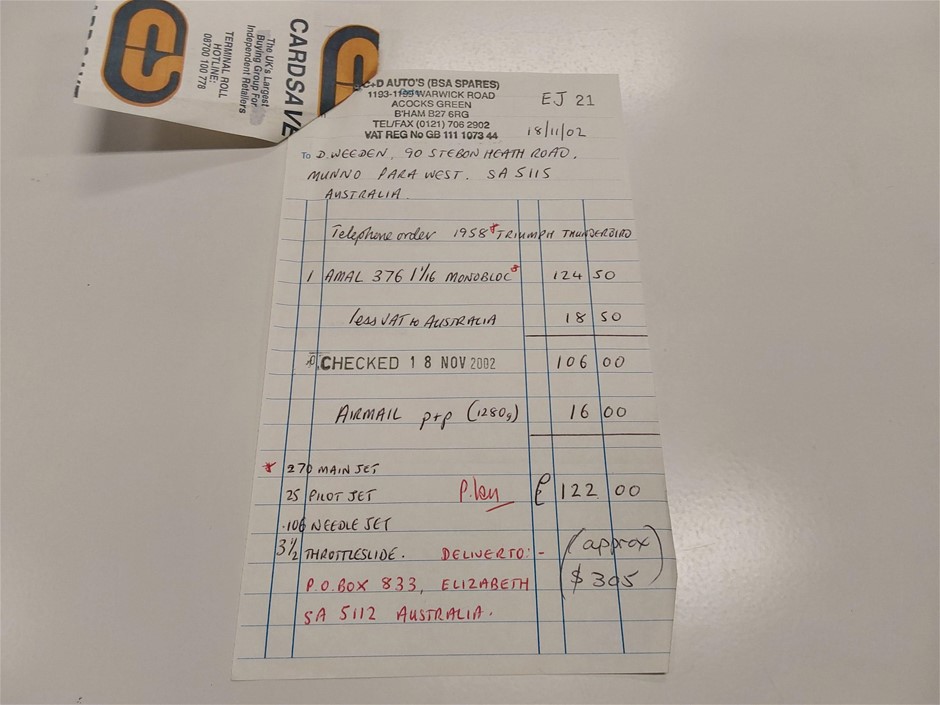 CARDSAVE
The UK's Largest
Buying Group For
Independent Retailers
TERMINAL ROLL
HOTLINE:
08700 100 778
C+D AUTO'S (BSA SPARES)
1193-1199 WARWICK ROAD
ACOCKS GREEN
B'HAM B27 6RG
TEL/FAX (0121) 706 2902
VAT REG No GB 111 1073 44
EJ 21
18/11/02
To D. WEEDEN, 90 STEBON HEATH ROAD,
MUNNO PARA WEST. SA 5115
AUSTRALIA.
Telephone order 1958 * TRIUMPH THUNDERBIRD
1 AMAL 376 1 1/16 MONOBLOC * 124 50
less VAT to AUSTRALIA 18 50
CHECKED 18 NOV 2002 106 00
AIRMAIL p+p (1280g) 16 00
* 270 MAIN JET
25 PILOT JET £ 122 00
.106 NEEDLE JET
3½ THROTTLESLIDE. DELIVER TO:- (approx
P.O. BOX 833, ELIZABETH $305)
SA 5112 AUSTRALIA.